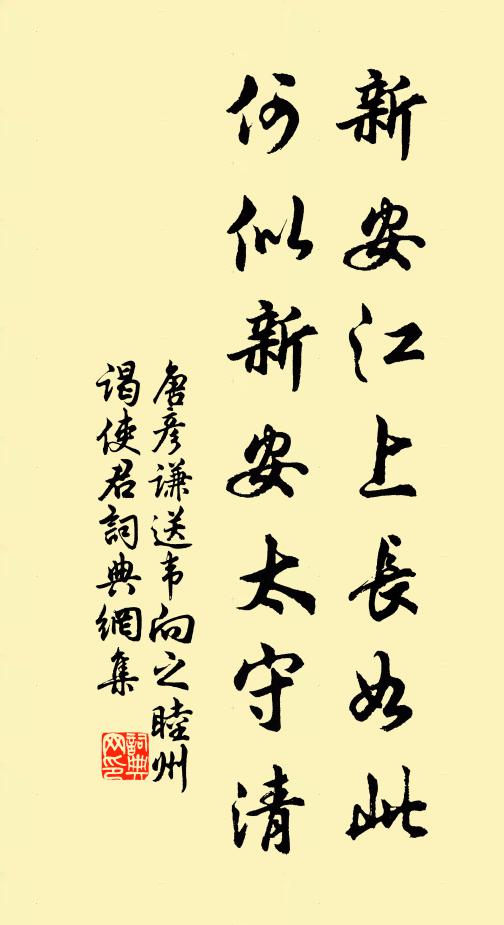 新安江上長如此
何似新安太守清
唐彥謙送韦向之睦州
谒使君詞典網集
詞典
网印